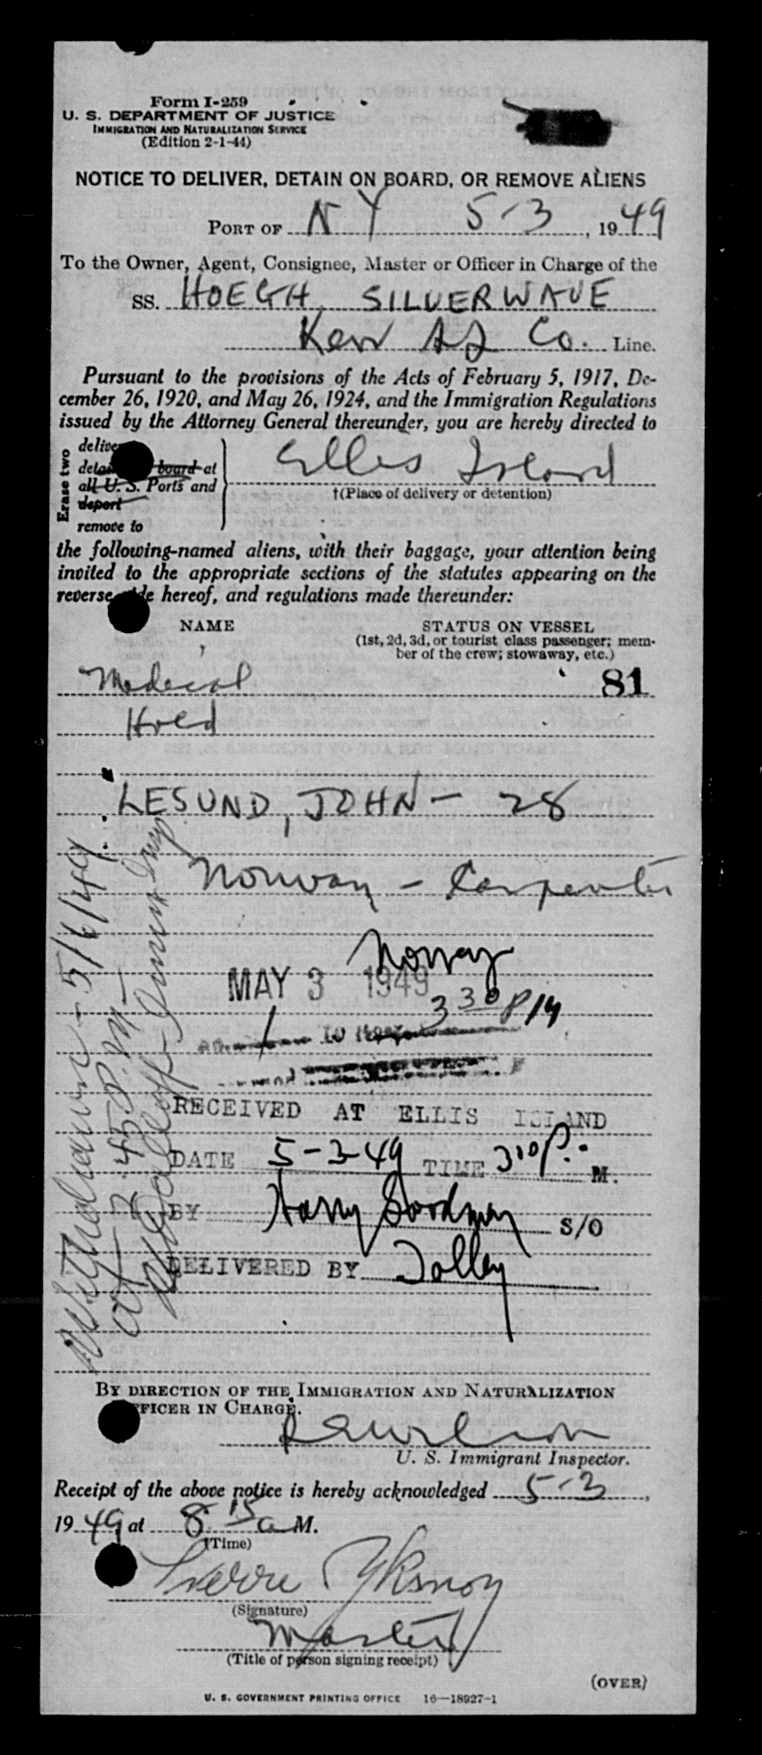 Form I-259
U. S. DEPARTMENT OF JUSTICE
IMMIGRATION AND NATURALIZATION SERVICE
(Edition 2-1-44)
NOTICE TO DELIVER, DETAIN ON BOARD, OR REMOVE ALIENS
PORT OF N Y 5-3, 1949
To the Owner, Agent, Consignee, Master or Officer in Charge of the
SS. HOEGH SILVERWAVE
Kerr SS Co. Line.
Pursuant to the provisions of the Acts of February 5, 1917, De-
cember 26, 1920, and May 26, 1924, and the Immigration Regulations
issued by the Attorney General thereunder, you are hereby directed to
Erase two
deliver
board at
all U. S. Ports and
deport
remove to
Ellis Island
†(Place of delivery or detention)
the following-named aliens, with their baggage, your attention being
invited to the appropriate sections of the statutes appearing on the
reverse side hereof, and regulations made thereunder:
NAME
STATUS ON VESSEL
(1st, 2d, 3d, or tourist class passenger; mem-
ber of the crew; stowaway, etc.)
Medical 81
Hold
LESUND, JOHN - 28
Norway - Carpenter
Norway
MAY 3 1949
330 P
RECEIVED AT ELLIS ISLAND
DATE 5-3-49 TIME 310 P. M.
BY Harry Goodman S/O
DELIVERED BY Tolley
Withdrawn - 5/6/49
at 2:45 P.M. -
BY DIRECTION OF THE IMMIGRATION AND NATURALIZATION
OFFICER IN CHARGE.
U. S. Immigrant Inspector.
Receipt of the above notice is hereby acknowledged 5-3,
1949 at 8 15 a M.
(Time)
(Signature)
Master
(Title of person signing receipt)
(OVER)
U. S. GOVERNMENT PRINTING OFFICE 16—18927-1